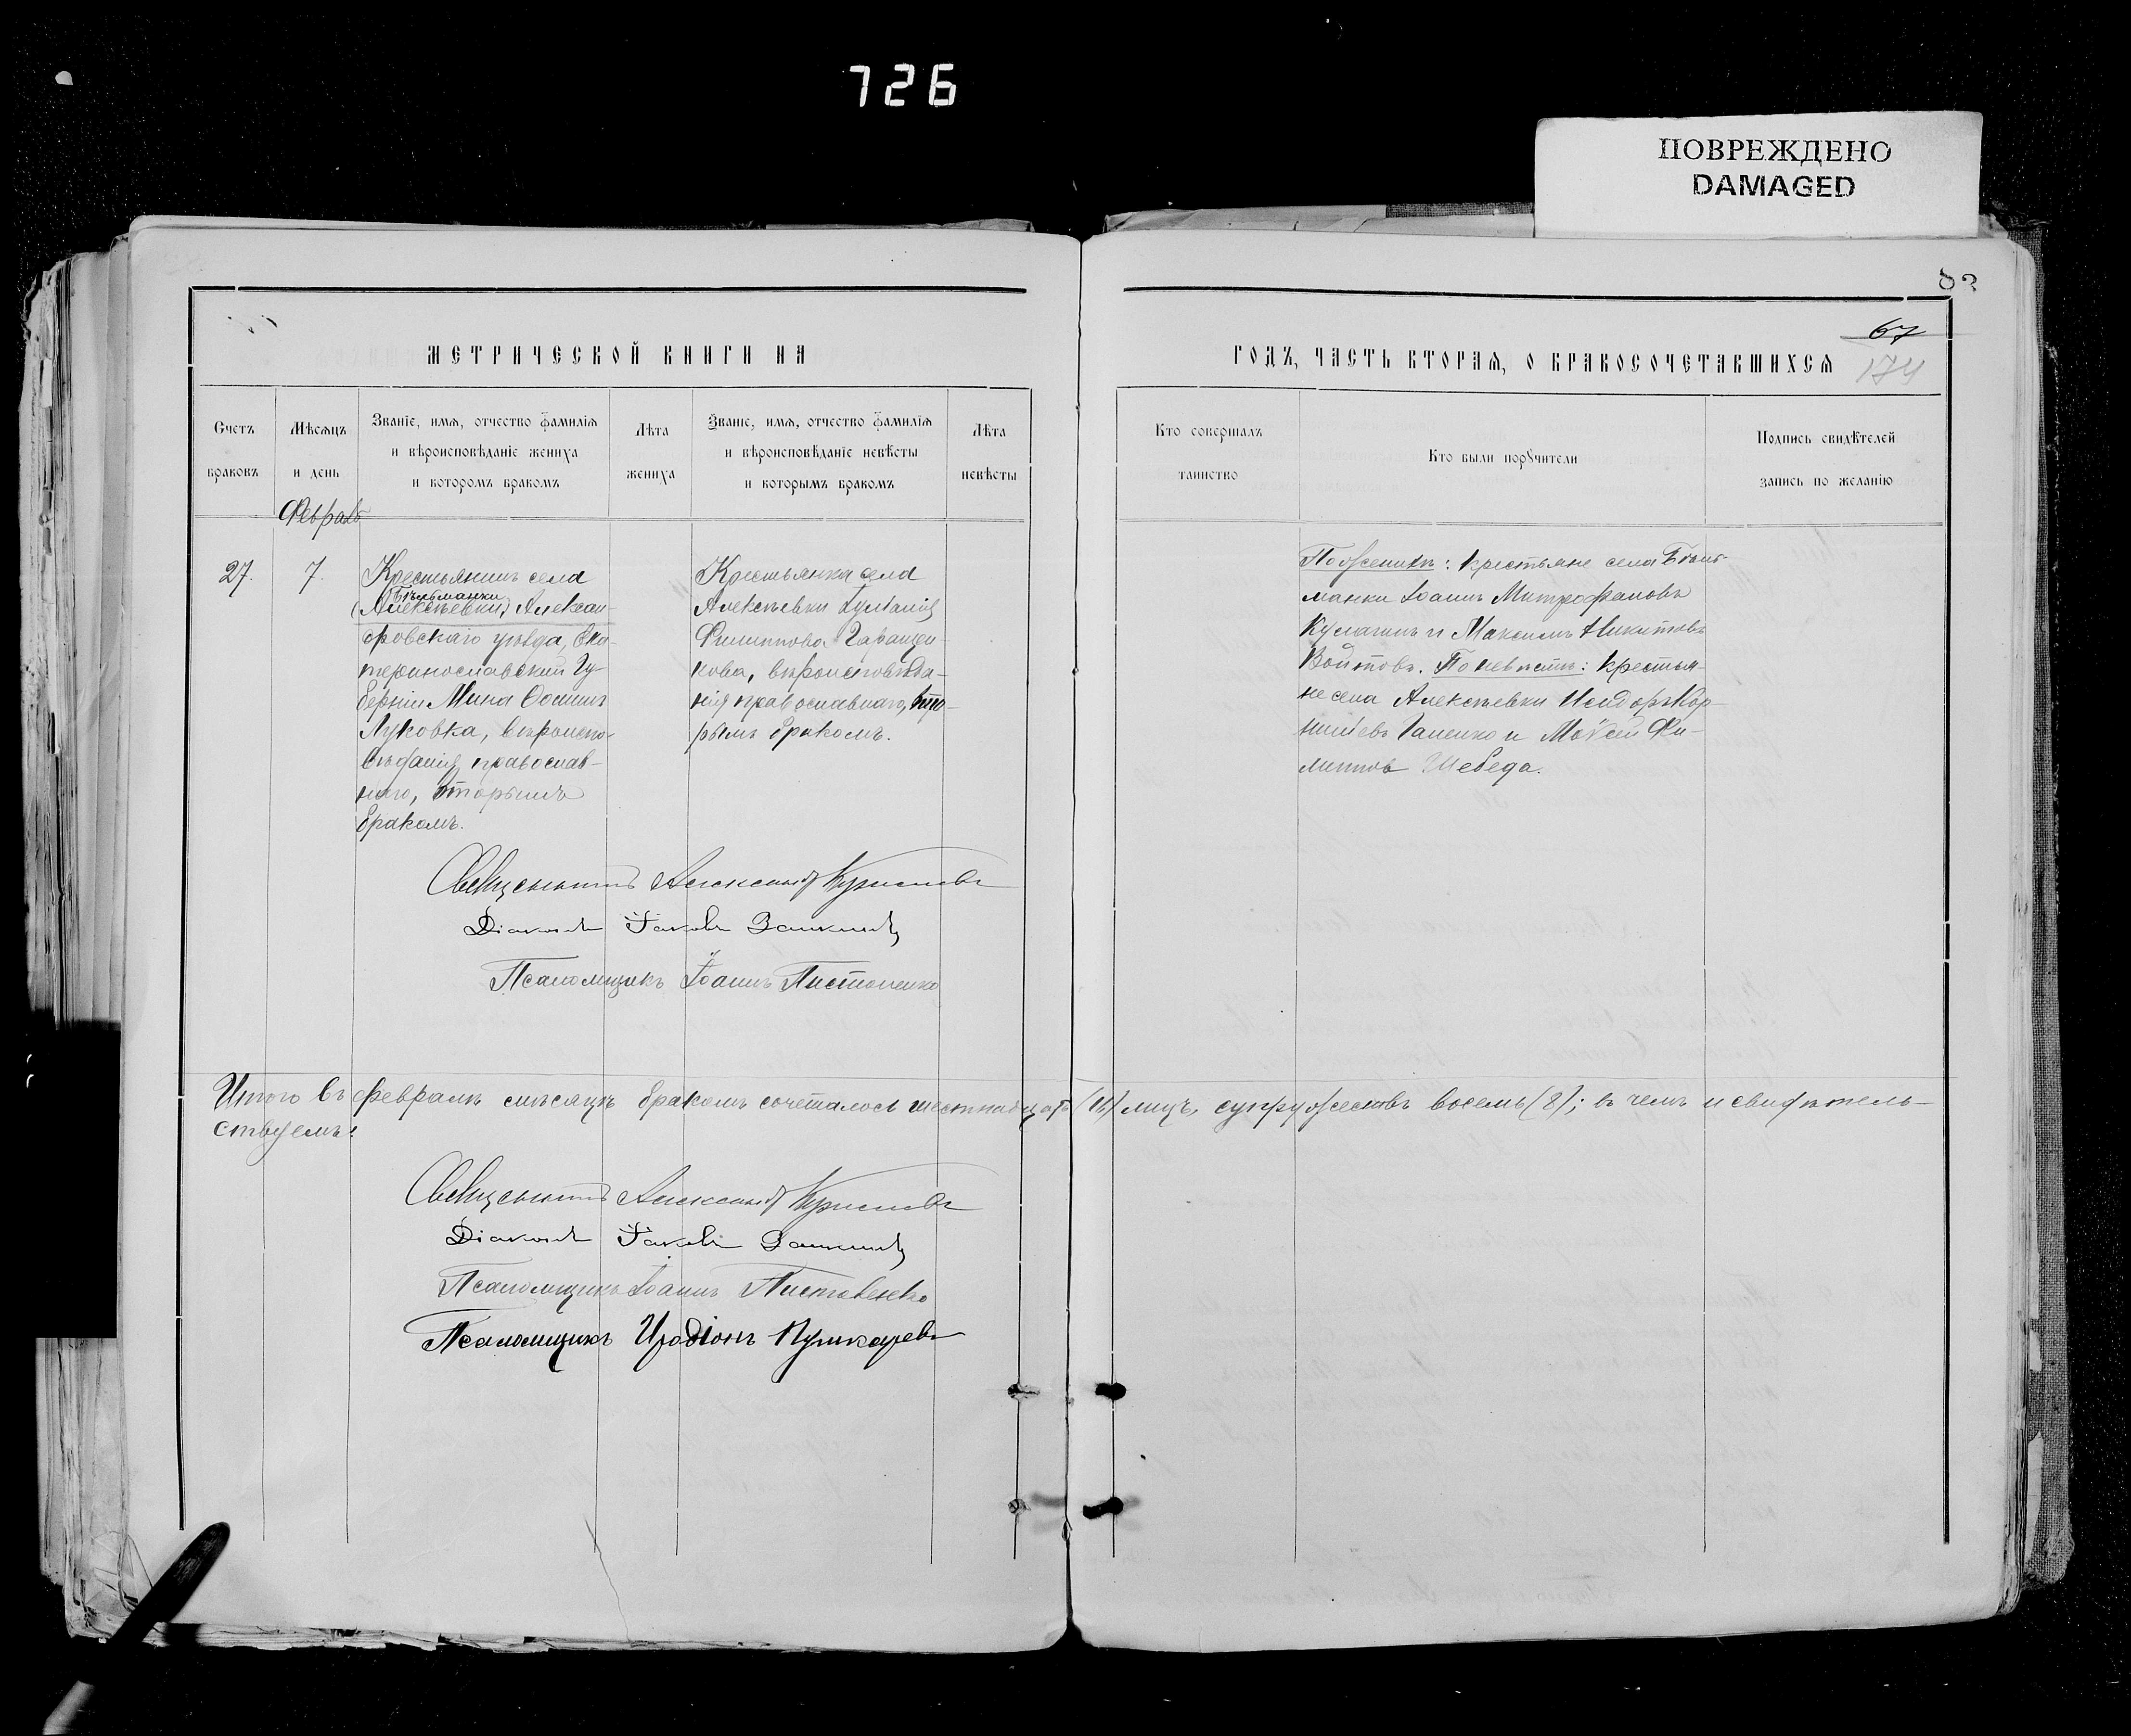 726
ПОВРЕЖДЕНО
DAMAGED
67
174
МЕТРИЧЕСКОЙ КНИГИ НА
ГОДЪ, ЧАСТЬ ВТОРАЯ, О БРАКОСОЧЕТАВШИХСЯ
Счетъ
браковъ
Мѣсяцъ
и день
Званіе, имя, отчество фамилія
и вѣроисповѣданіе жениха
и которомъ бракомъ
Лѣта
жениха
Званіе, имя, отчество фамилія
и вѣроисповѣданіе невѣсты
и которымъ бракомъ
Лѣта
невѣсты
Кто совершалъ
таинство
Кто были порꙋчители
Подпись свидѣтелей
запись по желанію
Февраль
27.
7.
Крестьянинъ села
Бѣльманки
(Алексѣевки,) Алексан-
дровскаго уѣзда, Ека-
теринославской Гу-
берніи Мина Ѳоминъ
Луковка, вѣроиспо-
вѣданія православ-
наго, вторымъ
бракомъ.
Крестьянка села
Алексѣевки Іуліанія
Филиппова Гаращен-
кова, вѣроисповѣда-
нія православнаго, вто-
рымъ бракомъ.
По женихѣ: крестьяне села Бѣль-
манки Іоаннъ Митрофановъ
Кулагинъ и Максимъ Никитовъ
Войтовъ. По невѣстѣ: крестья-
не села Алексѣевки Исидоръ Кор-
ниліевъ Гапенко и Моѵсей Фи-
липповъ Шебеда.
Священникъ Александръ
Діаконъ Іаковъ
Псаломщикъ Іоаннъ Листопенко
Итого въ февралѣ мѣсяцѣ бракомъ сочеталось шестнадцать (16) лицъ, супружествъ восемь (8); въ чемъ и свидѣтель-
ствуемъ:
Священникъ Александръ
Діаконъ Іаковъ
Псаломщикъ Іоаннъ
Псаломщикъ Иродіонъ Пушкаревъ